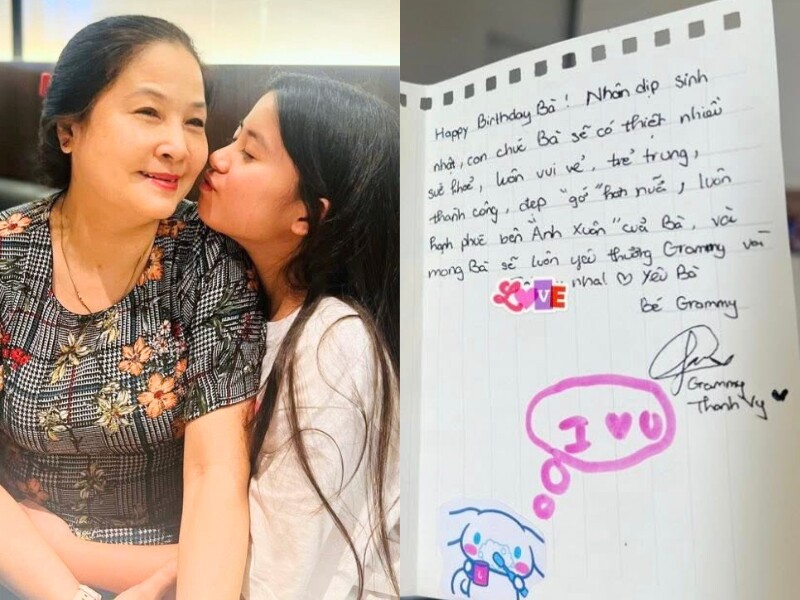 Happy Birthday Bà! Nhân dịp sinh
nhật, con chúc Bà sẽ có thiệt nhiều
sức khoẻ, luôn vui vẻ, trẻ trung,
thành công, đẹp " " hơn nữa, luôn
hạnh phúc bên "Anh Xuân" của Bà, và
mong Bà sẽ luôn yêu thương Grammy và
nha! ♡ Yêu Bà
LOVE
Bé Grammy
Grammy
Thanh Vy ♥
I ♥ U